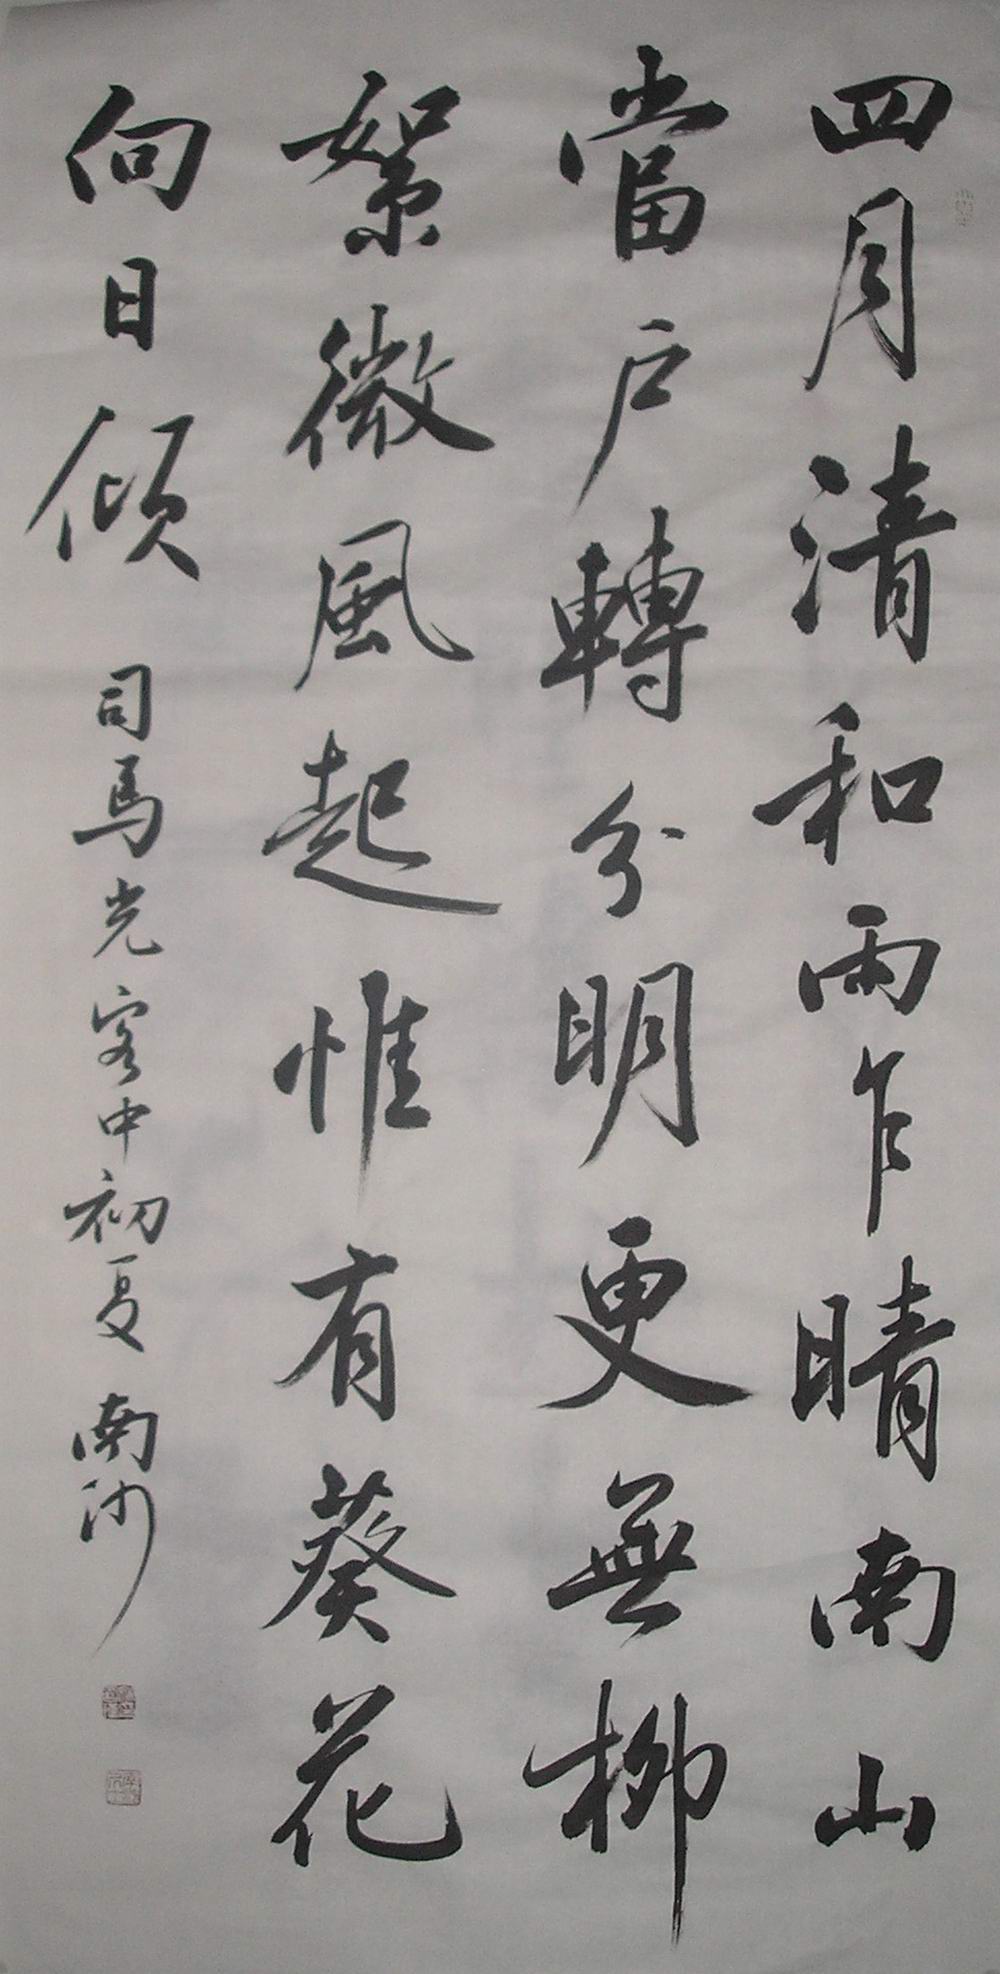 四月清和雨乍晴南山
當户轉分明更無柳
絮微風起惟有葵花
向日傾
司馬光客中初夏 南沙